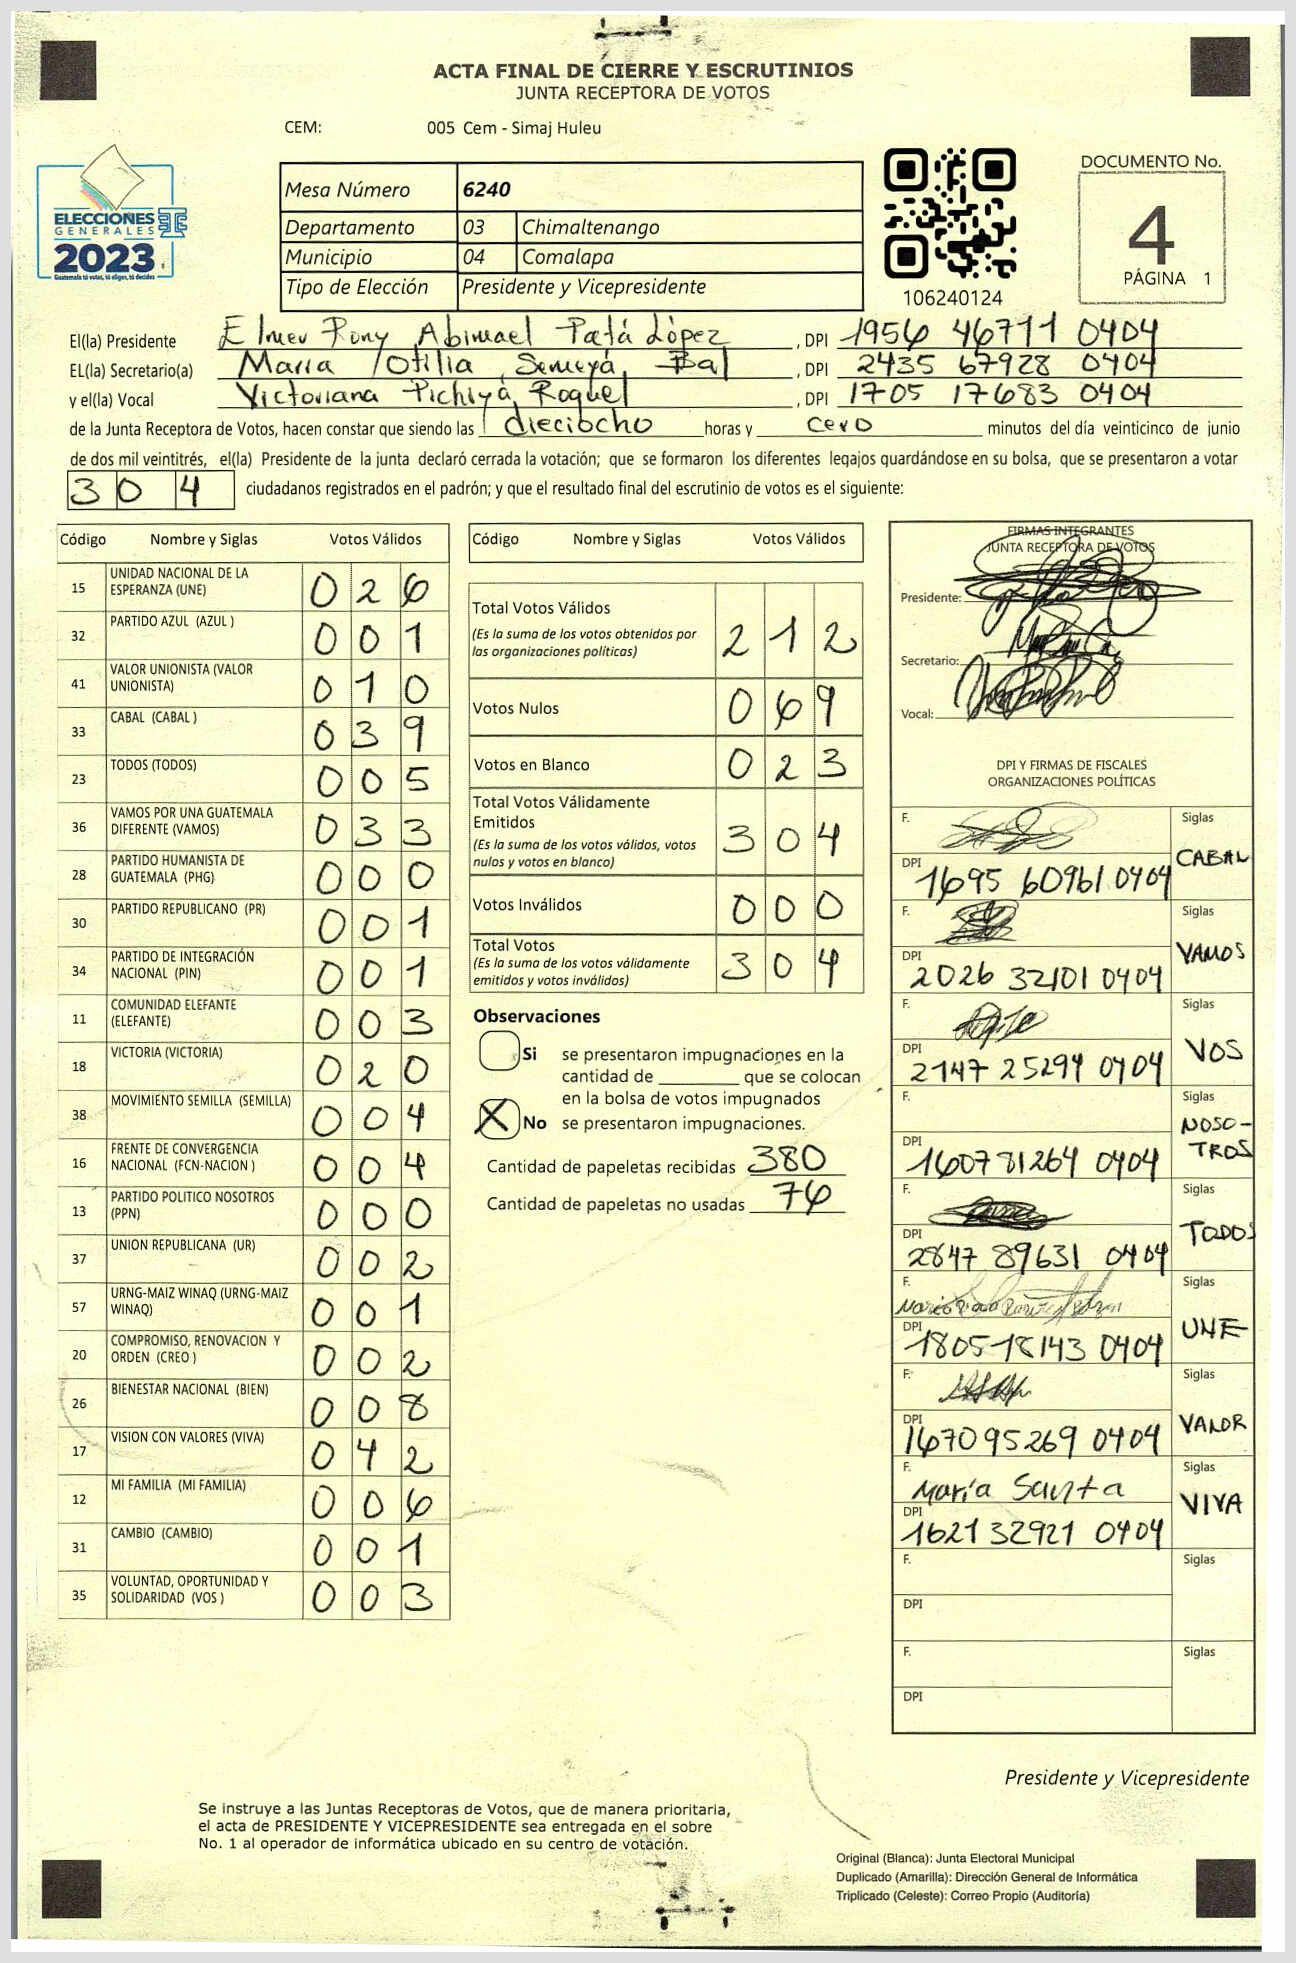 ACTA FINAL DE CIERRE Y ESCRUTINIOS
JUNTA RECEPTORA DE VOTOS
CEM: 005 Cem - Simaj Huleu
ELECCIONES
GENERALES
2023
Guatemala tú votas, tú eliges, tú decides
Mesa Número 6240
Departamento 03 Chimaltenango
Municipio 04 Comalapa
Tipo de Elección Presidente y Vicepresidente
106240124
DOCUMENTO No.
4
PÁGINA 1
El(la) Presidente Elmer Rony Abimael Patá López, DPI 1956 46711 0404
EL(la) Secretario(a) Maria Otilia Semeyá Bal, DPI 2435 67928 0404
y el(la) Vocal Victoriana Pichiyá Roquel, DPI 1705 17683 0404
de la Junta Receptora de Votos, hacen constar que siendo las dieciocho horas y cero minutos del día veinticinco de junio
de dos mil veintitrés, el(la) Presidente de la junta declaró cerrada la votación; que se formaron los diferentes legajos guardándose en su bolsa, que se presentaron a votar
304 ciudadanos registrados en el padrón; y que el resultado final del escrutinio de votos es el siguiente:
Código Nombre y Siglas Votos Válidos
15 UNIDAD NACIONAL DE LA ESPERANZA (UNE) 026
32 PARTIDO AZUL (AZUL ) 001
41 VALOR UNIONISTA (VALOR UNIONISTA) 010
33 CABAL (CABAL ) 039
23 TODOS (TODOS) 005
36 VAMOS POR UNA GUATEMALA DIFERENTE (VAMOS) 033
28 PARTIDO HUMANISTA DE GUATEMALA (PHG) 000
30 PARTIDO REPUBLICANO (PR) 001
34 PARTIDO DE INTEGRACIÓN NACIONAL (PIN) 001
11 COMUNIDAD ELEFANTE (ELEFANTE) 003
18 VICTORIA (VICTORIA) 020
38 MOVIMIENTO SEMILLA (SEMILLA) 004
16 FRENTE DE CONVERGENCIA NACIONAL (FCN-NACION ) 004
13 PARTIDO POLITICO NOSOTROS (PPN) 000
37 UNION REPUBLICANA (UR) 002
57 URNG-MAIZ WINAQ (URNG-MAIZ WINAQ) 001
20 COMPROMISO, RENOVACION Y ORDEN (CREO ) 002
26 BIENESTAR NACIONAL (BIEN) 008
17 VISION CON VALORES (VIVA) 042
12 MI FAMILIA (MI FAMILIA) 006
31 CAMBIO (CAMBIO) 001
35 VOLUNTAD, OPORTUNIDAD Y SOLIDARIDAD (VOS ) 003
Código Nombre y Siglas Votos Válidos
Total Votos Válidos 212
(Es la suma de los votos obtenidos por
las organizaciones políticas)
Votos Nulos 069
Votos en Blanco 023
Total Votos Válidamente
Emitidos 304
(Es la suma de los votos válidos, votos
nulos y votos en blanco)
Votos Inválidos 000
Total Votos 304
(Es la suma de los votos válidamente
emitidos y votos inválidos)
Observaciones
Si se presentaron impugnaciones en la
cantidad de ________ que se colocan
en la bolsa de votos impugnados
X No se presentaron impugnaciones.
Cantidad de papeletas recibidas 380
Cantidad de papeletas no usadas 76
FIRMAS INTEGRANTES
JUNTA RECEPTORA DE VOTOS
Presidente:
Secretario:
Vocal:
DPI Y FIRMAS DE FISCALES
ORGANIZACIONES POLÍTICAS
F. Siglas CABAL
DPI 1695 60961 0404
F. Siglas VAMOS
DPI 2026 32101 0404
F. Siglas VOS
DPI 2147 25294 0404
F. Siglas NOSO-
TROS
DPI 1607 81264 0404
F. Siglas TODOS
DPI 2847 89631 0404
F. Siglas UNE
DPI 1805 18143 0404
F. Siglas VALOR
DPI 1670 95269 0404
F. María Santa Siglas VIVA
DPI 1621 32921 0404
F. Siglas
DPI
F. Siglas
DPI
Presidente y Vicepresidente
Se instruye a las Juntas Receptoras de Votos, que de manera prioritaria,
el acta de PRESIDENTE Y VICEPRESIDENTE sea entregada en el sobre
No. 1 al operador de informática ubicado en su centro de votación.
Original (Blanca): Junta Electoral Municipal
Duplicado (Amarilla): Dirección General de Informática
Triplicado (Celeste): Correo Propio (Auditoría)